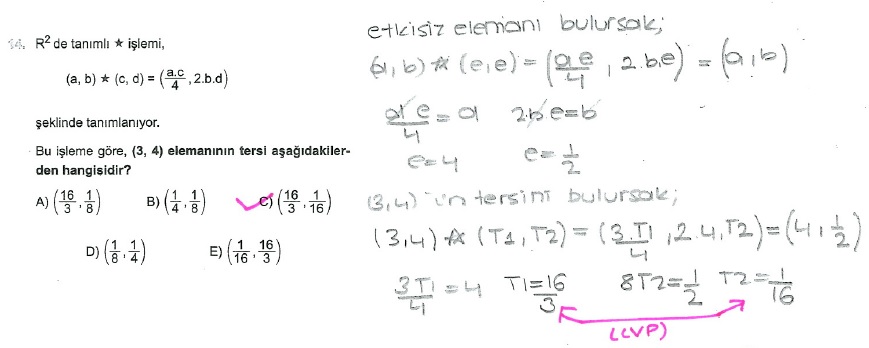 14. R² de tanımlı ★ işlemi,
(a, b) ★ (c, d) = (a.c/4, 2.b.d)
şeklinde tanımlanıyor.
Bu işleme göre, (3, 4) elemanının tersi aşağıdakiler-
den hangisidir?
A) (16/3, 1/8) B) (1/4, 1/8) C) (16/3, 1/16)
D) (1/8, 1/4) E) (1/16, 16/3)
etkisiz elemanı bulursak;
(a, b) ★ (e, e) = (a.e/4, 2.b.e) = (a, b)
a.e/4 = a 2b.e = b
e = 4 e = 1/2
(3,4)'ün tersini bulursak;
(3,4) ★ (T1, T2) = (3.T1/4, 2.4.T2) = (4, 1/2)
3T1/4 = 4 T1 = 16/3 8T2 = 1/2 T2 = 1/16
(CVP)